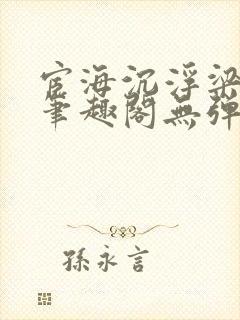 宦海沉浮梁
笔趣阁無弹
孫永言